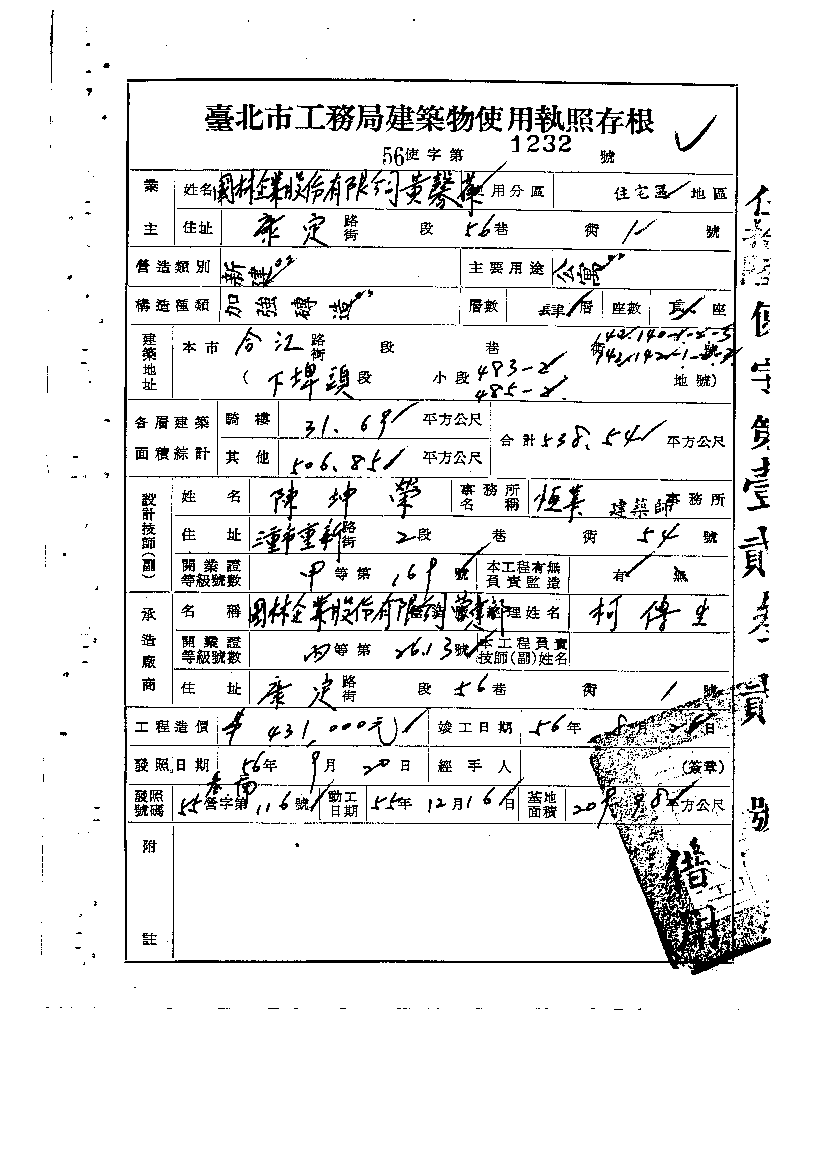 臺北市工務局建築物使用執照存根
56使字第 1232 號
業主 姓名 國林企業股份有限公司黃馨 使用分區 住宅區 地區
住址 康定 路街 段 56巷 衖 1 號
營造類別 新建 主要用途 公寓
構造種類 加強磚造 層數 肆層 座數 座
建築地址 本市 合江 路街 段 巷 衖 號
(下埤頭段 小段 483-2 485-2 地號)
各層建築面積綜計 騎樓 31.69 平方公尺 合計 538.54 平方公尺
其他 506.85 平方公尺
設計技師(副) 姓名 陳坤榮 事務所名稱 恒業 建築師事務所
住址 重新路街 2段 巷 衖 54 號
開業證等級號數 甲等第 169 號 本工程有無負責監造 有 無
承造廠商 名稱 國林企業股份有限公司營造部 經理姓名 柯傳生
開業證等級號數 丙等第 2613號 本工程負責技師(副)姓名
住址 康定 路街 段 56巷 衖 1 號
工程造價 431,000元 竣工日期 56年 8月 日
發照日期 56年 9月 20日 經手人 (簽章)
發照號碼 55營字第 116號 動工日期 55年12月16日 基地面積 209.98平方公尺
附註
使字第壹貳參貳號
借用